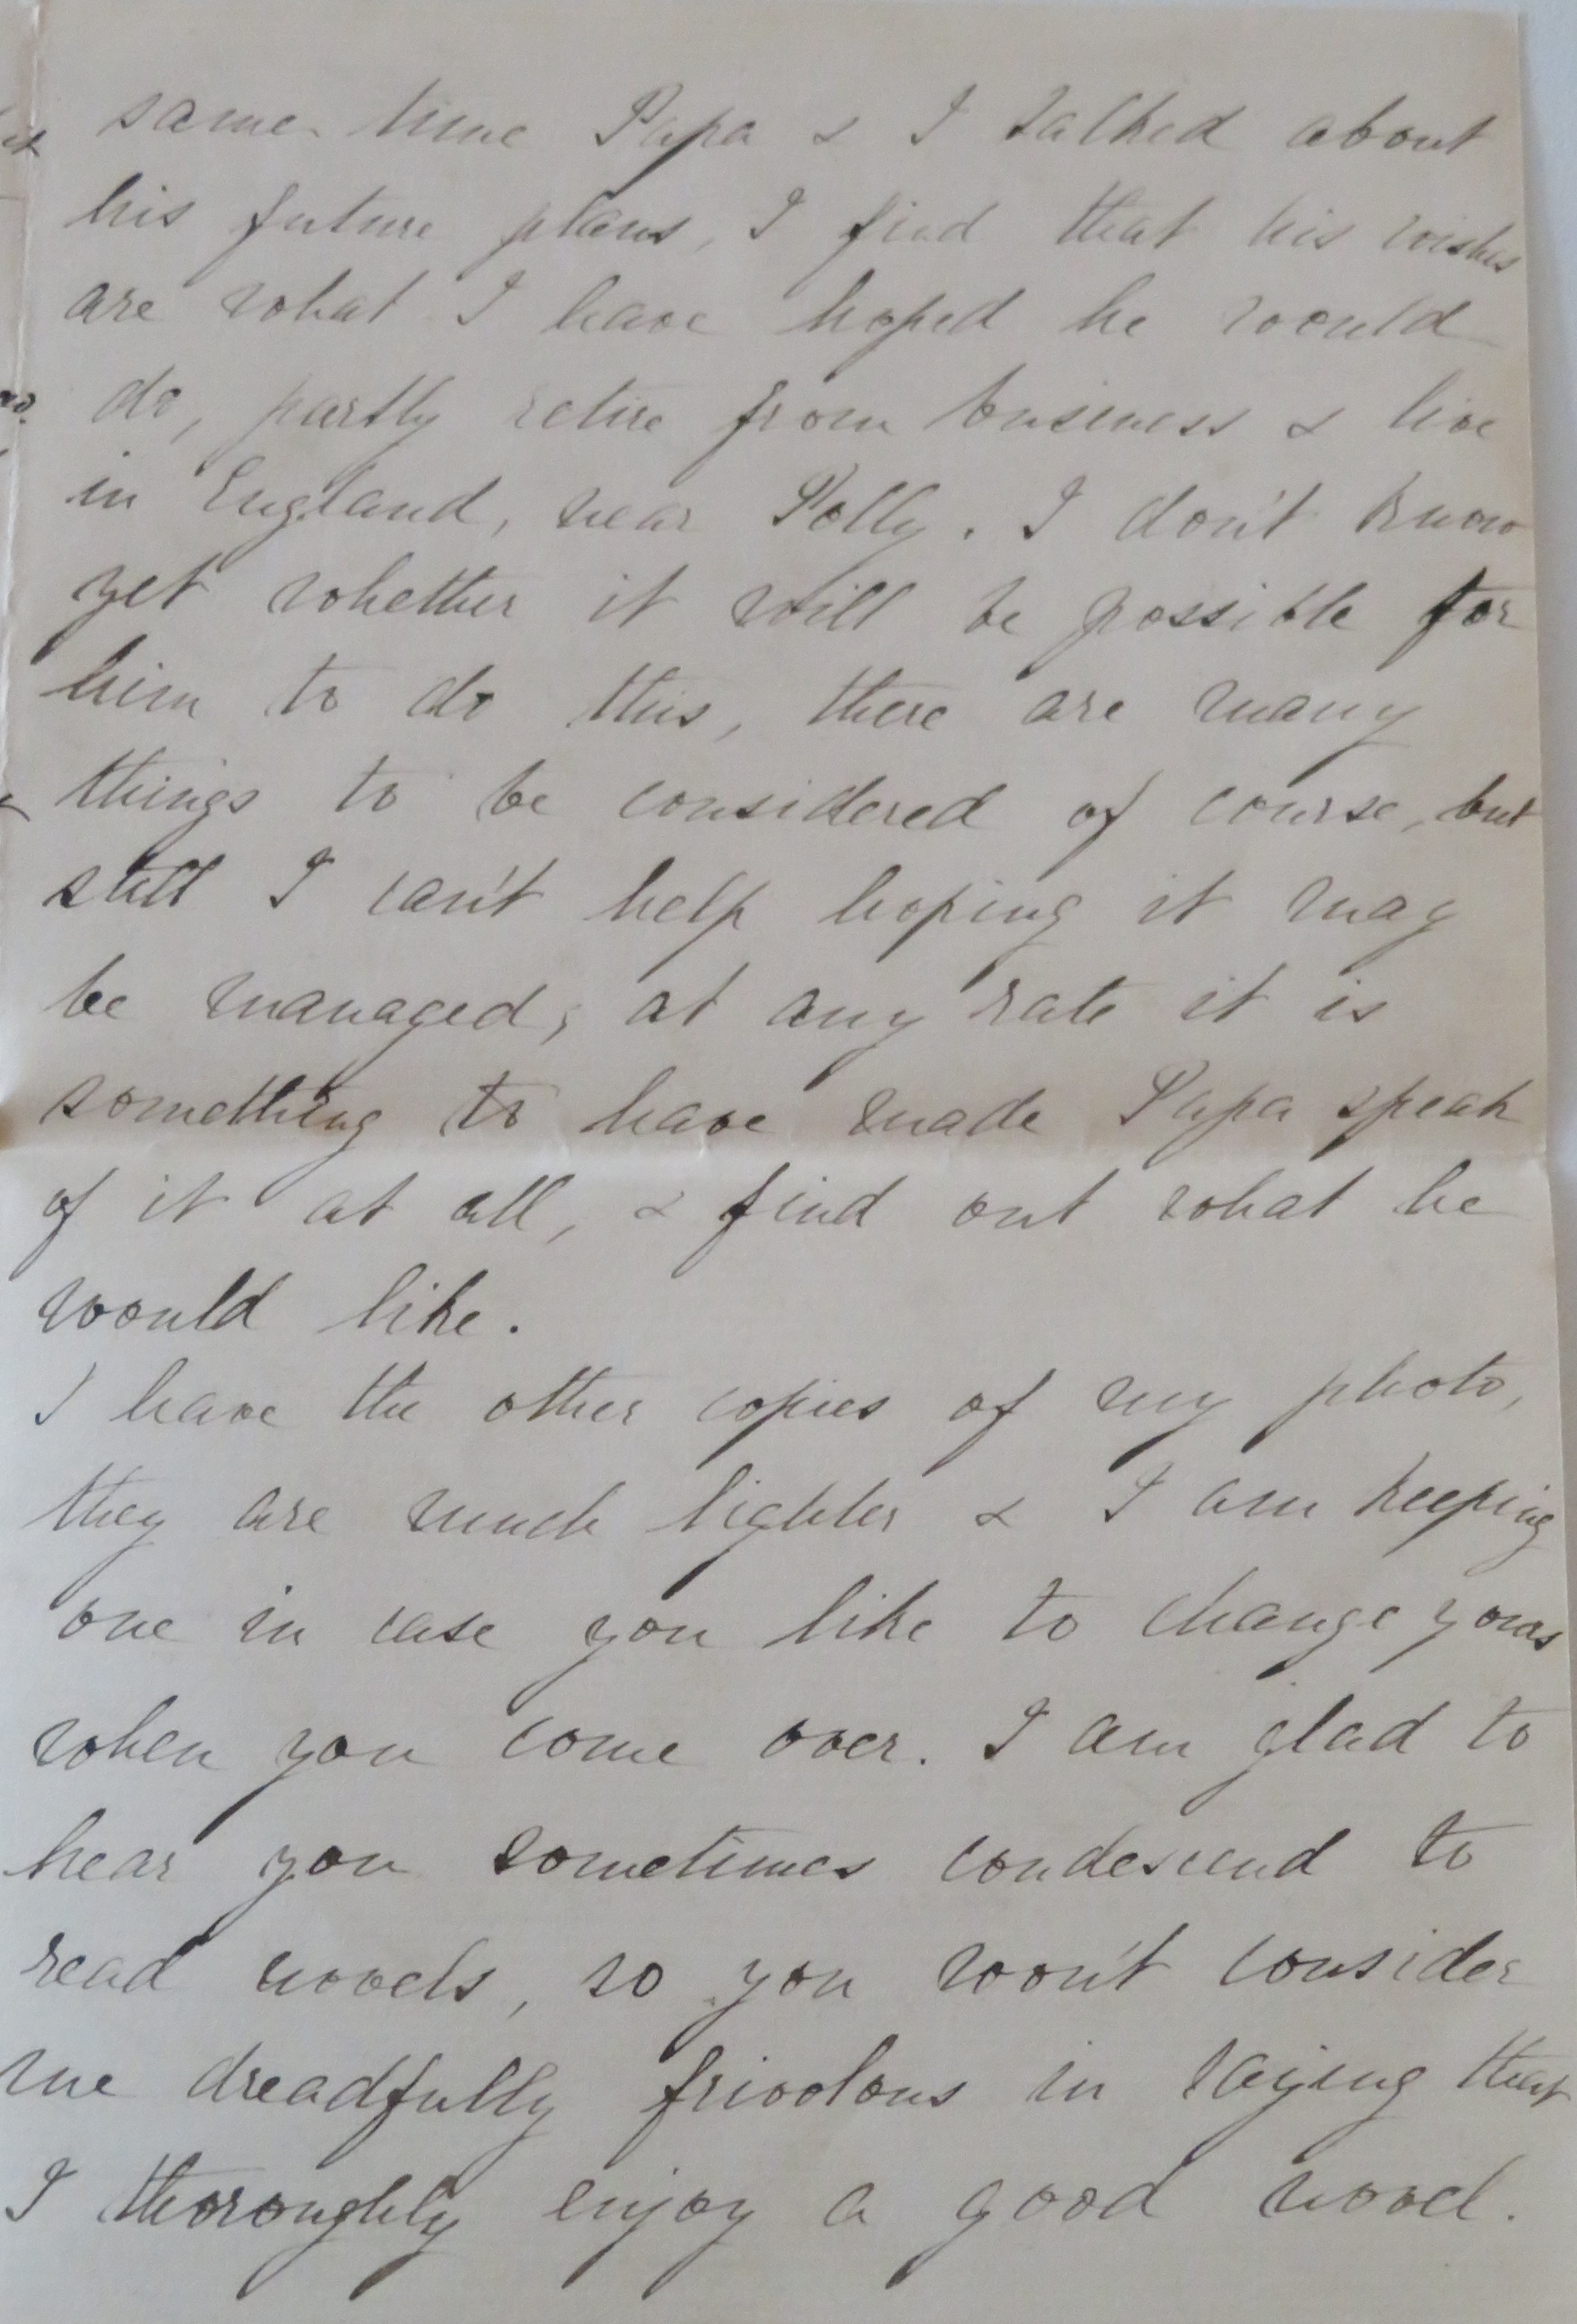 same time Papa & I talked about
his future plans, I find that his wishes
are what I have hoped he would
do, partly retire from business & live
in England, near Polly. I don't know
yet whether it will be possible for
him to do this, there are many
things to be considered of course, but
still I can't help hoping it may
be managed; at any rate it is
something to have made Papa speak
of it at all, & find out what he
would like.
I have the other copies of my photo,
they are much lighter & I am keeping
one in case you like to change yours
when you come over. I am glad to
hear you sometimes condescend to
read novels, so you won't consider
me dreadfully frivolous in saying that
I thoroughly enjoy a good novel.